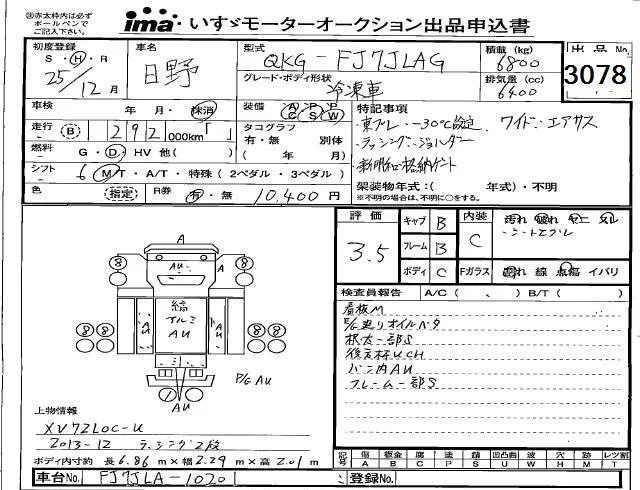 ㊟赤太枠内は必ず
ボールペンで
ご記入ください。
ima いすゞモーターオークション出品申込書
初度登録
S・H・R
25/12月
車名
日野
型式
QKG-FJ7JLAG
積載 (kg)
6800
出品No.
3078
グレード・ボディ形状
冷凍車
排気量 (cc)
6400
車検 年 月・抹消
装備 A/C P/S P/W
特記事項
・東プレ、-30℃設定、ワイド・エアサス
走行 B 292 000km「 」
タコグラフ
有・無 別体
( 年 月)
・ラッシング・ジョルダー
・新明和・格納ゲート
燃料 G・D・HV 他( )
シフト 6 M/T・A/T・特殊(2ペダル・3ペダル)
架装物年式:( 年式)・不明
※不明の場合は、不明に○をする。
色 指定
R券 有・無 10,400円
評価 3.5
キャブ B
フレーム B
ボディ C
内装 C
汚れ 破れ ヤニ タル
・シートスグレ
Fガラス 汚れ 線 点傷 イバリ
検査員報告 A/C( 、 ) B/T( )
看板M
根太一部S
バン内AU
フレーム一部S
A
8 8
AU
A
縞
アルミ
AU
AU AU
8 8 8 8
ミ
P/G AU
AU
上物情報
XV72LOC-U
2013-12 ラッシング2段
ボディ内寸約 長6.86m×幅2.29m×高2.01m
記号 傷 A 板金 B 腐 C 塗 P 錆 S 凹凸曲 U 波 W 穴 H 跡 M レツ割 T
車台No. FJ7JLA-1020
登録No.